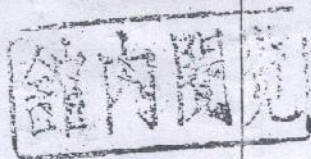 館内閲覧